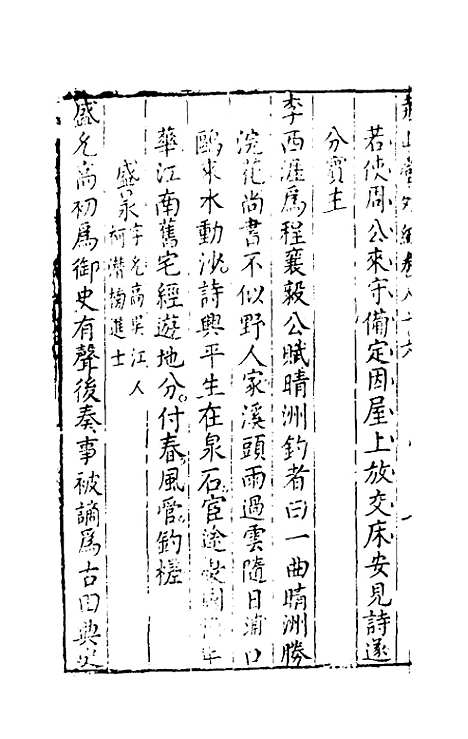 堯山堂外紀卷八十六
若使周公來守備定因屋上放交床安見詩遂
分賓主
李西涯爲程襄毅公賦晴洲釣者曰一曲晴洲勝
浣花尚書不似野人家溪頭雨過雲隨日浦口
鷗來水動沙詩興平生在泉石宦途
華江南舊宅經遊地分付春風管釣槎
盛永字允高吳江人
柯潛榜進士
盛允高初爲御史有聲後奏事被謫爲古田典史